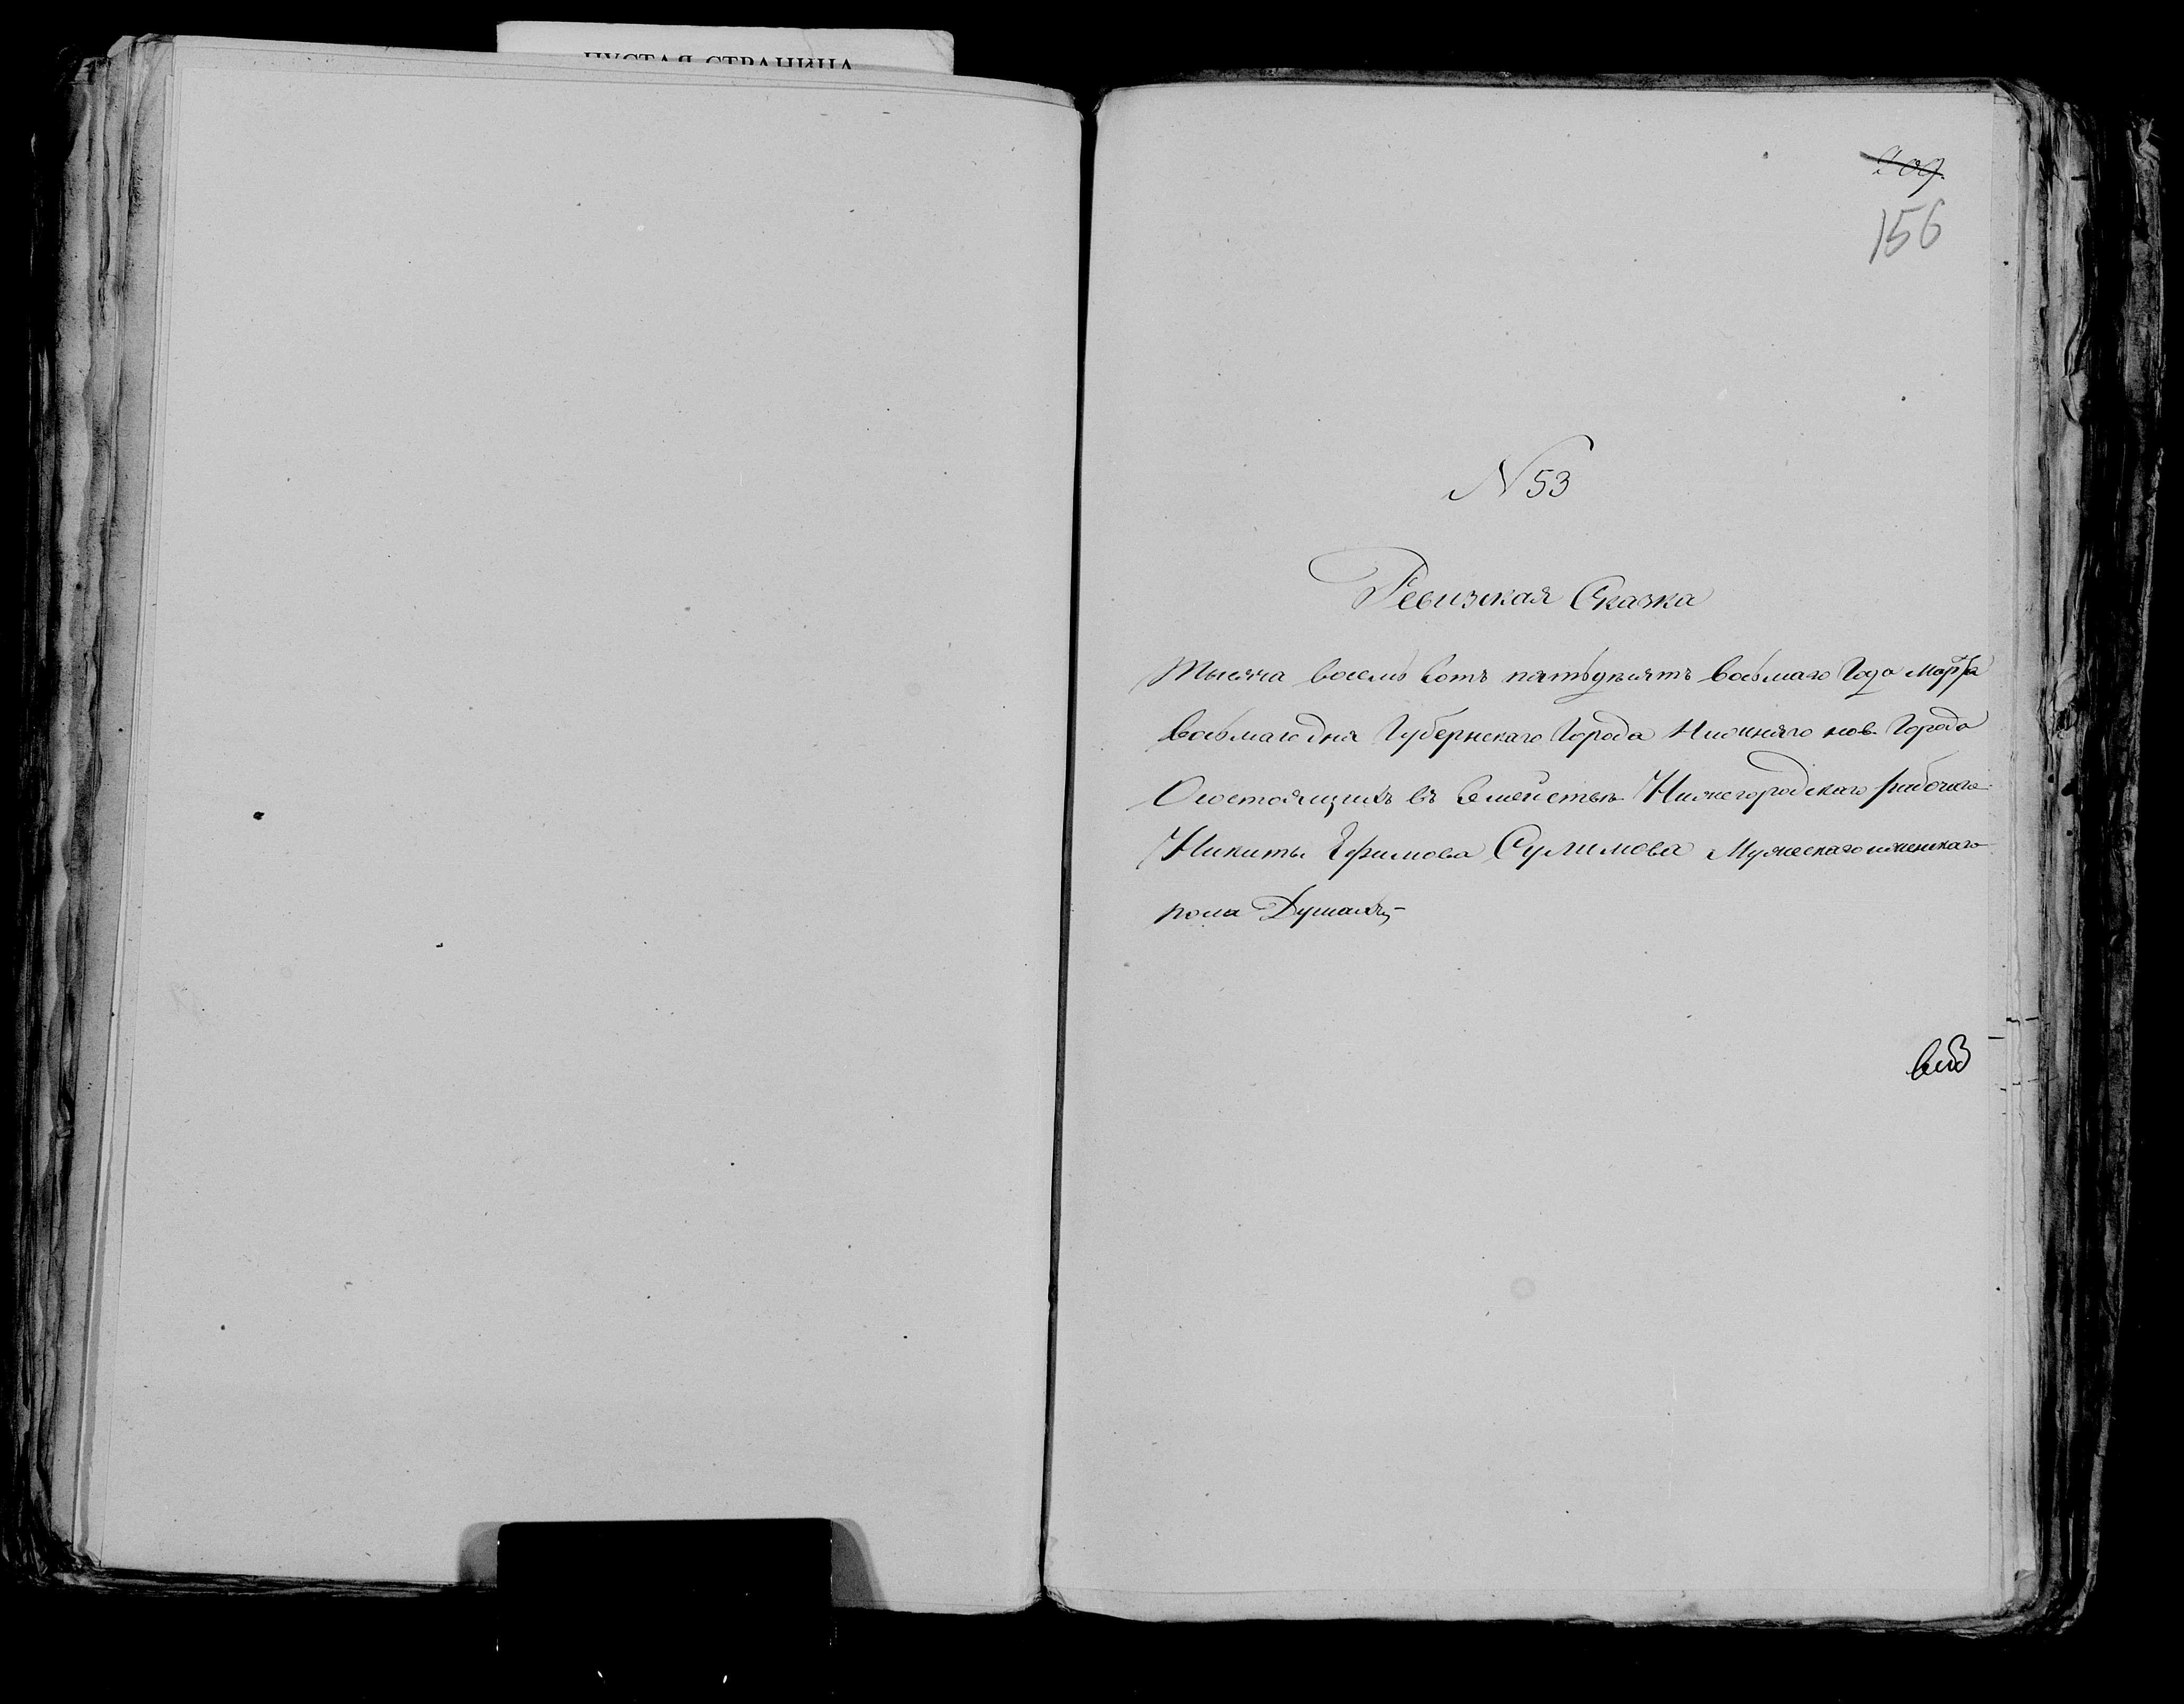 ПУСТАЯ СТРАНИЦА
209.
156
N 53
Ревизская Сказка
Тысяча восемь сотъ пятьдесятъ восьмаго Года марта
восьмаго дня Губернскаго Города Нижняго нов. Города
О состоящихъ въ Семействѣ Нижегородскаго рабочаго
Никиты Ефимова Сулимова Мужескаго и женскаго
пола Душахъ